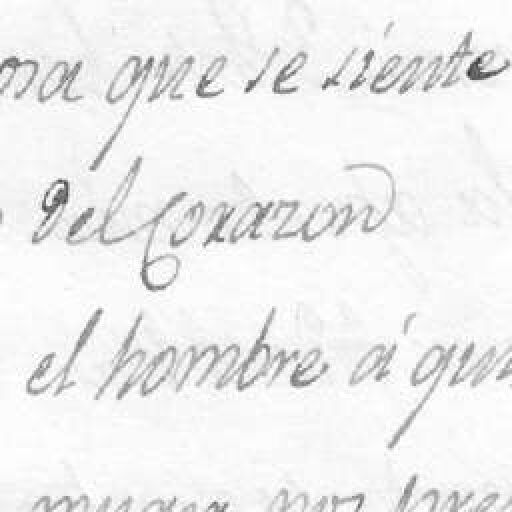 osa que se siente
del Corazon
el hombre á qui